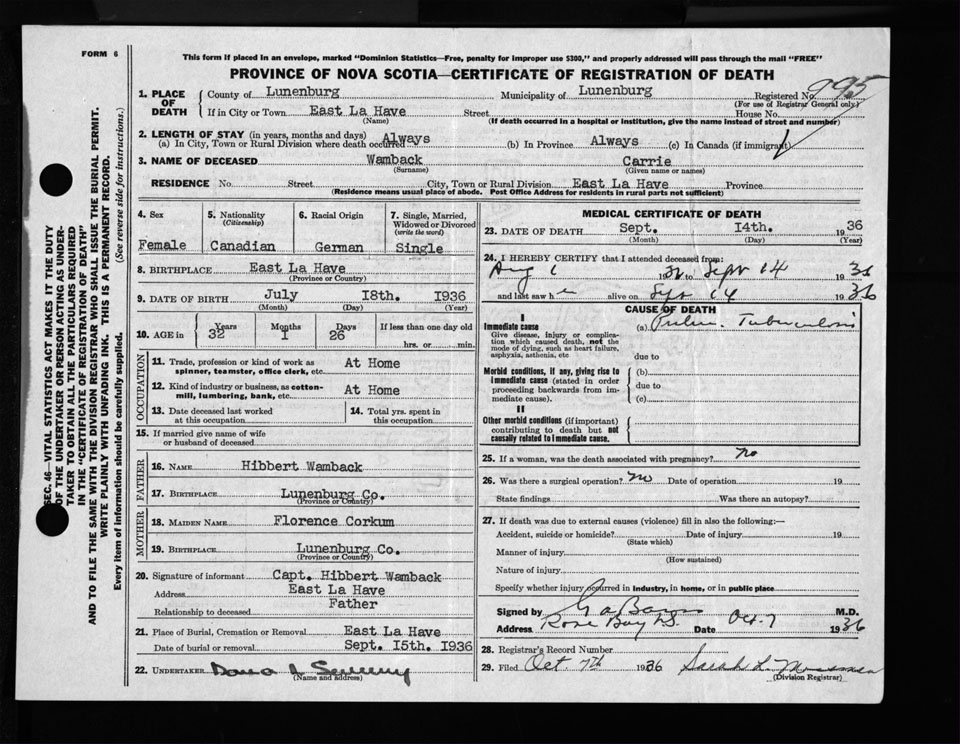 FORM 6
This form if placed in an envelope, marked "Dominion Statistics—Free, penalty for improper use $300," and properly addressed will pass through the mail "FREE"
PROVINCE OF NOVA SCOTIA—CERTIFICATE OF REGISTRATION OF DEATH
SEC. 46—VITAL STATISTICS ACT MAKES IT THE DUTY
OF THE UNDERTAKER OR PERSON ACTING AS UNDER-
TAKER TO OBTAIN ALL THE PARTICULARS REQUIRED
IN THE "CERTIFICATE OF REGISTRATION OF DEATH"
AND TO FILE THE SAME WITH THE DIVISION REGISTRAR WHO SHALL ISSUE THE BURIAL PERMIT.
WRITE PLAINLY WITH UNFADING INK. THIS IS A PERMANENT RECORD.
Every item of information should be carefully supplied. (See reverse side for instructions.)
1. PLACE OF DEATH
County of Lunenburg Municipality of Lunenburg Registered No. 995
(For use of Registrar General only.)
If in City or Town East La Have Street House No.
(Name) (If death occurred in a hospital or institution, give the name instead of street and number)
2. LENGTH OF STAY (in years, months and days)
(a) In City, Town or Rural Division where death occurred Always (b) In Province Always (c) In Canada (if immigrant)
3. NAME OF DECEASED Wamback Carrie
(Surname) (Given name or names)
RESIDENCE No. Street City, Town or Rural Division East La Have Province
(Residence means usual place of abode. Post Office Address for residents in rural parts not sufficient)
4. Sex Female
5. Nationality (Citizenship) Canadian
6. Racial Origin German
7. Single, Married, Widowed or Divorced (write the word) Single
8. BIRTHPLACE East La Have
(Province or Country)
9. DATE OF BIRTH July 18th. 1936
(Month) (Day) (Year)
10. AGE in Years Months Days If less than one day old
32 1 26 hrs. or min.
OCCUPATION
11. Trade, profession or kind of work as spinner, teamster, office clerk, etc. At Home
12. Kind of industry or business, as cotton-mill, lumbering, bank, etc. At Home
13. Date deceased last worked at this occupation
14. Total yrs. spent in this occupation
15. If married give name of wife or husband of deceased
FATHER
16. NAME Hibbert Wamback
17. BIRTHPLACE Lunenburg Co.
(Province or Country)
MOTHER
18. MAIDEN NAME Florence Corkum
19. BIRTHPLACE Lunenburg Co.
(Province or Country)
20. Signature of informant Capt. Hibbert Wamback
Address East La Have
Relationship to deceased Father
21. Place of Burial, Cremation or Removal East La Have
Date of burial or removal Sept. 15th. 1936
22. UNDERTAKER
(Name and address)
MEDICAL CERTIFICATE OF DEATH
23. DATE OF DEATH Sept. 14th. 1936
(Month) (Day) (Year)
24. I HEREBY CERTIFY that I attended deceased from:
Aug 1 1936 to Sept 14 1936
and last saw h e alive on Sept 14 1936
CAUSE OF DEATH
I
Immediate cause (a) Pulm. Tuberculosis
Give disease, injury or complication which caused death, not the mode of dying, such as heart failure, asphyxia, asthenia, etc
due to
Morbid conditions, if any, giving rise to immediate cause (stated in order proceeding backwards from immediate cause). (b)
due to
(c)
II
Other morbid conditions (if important) contributing to death but not causally related to immediate cause.
25. If a woman, was the death associated with pregnancy? no
26. Was there a surgical operation? no Date of operation 19
State findings Was there an autopsy?
27. If death was due to external causes (violence) fill in also the following:—
Accident, suicide or homicide? Date of injury 19
(State which)
Manner of injury
(How sustained)
Nature of injury
Specify whether injury occurred in industry, in home, or in public place
Signed by M.D.
Address Rose Bay N.S. Date Oct. 7 1936
28. Registrar's Record Number
29. Filed Oct 7th 1936 Sarah L.
(Division Registrar)